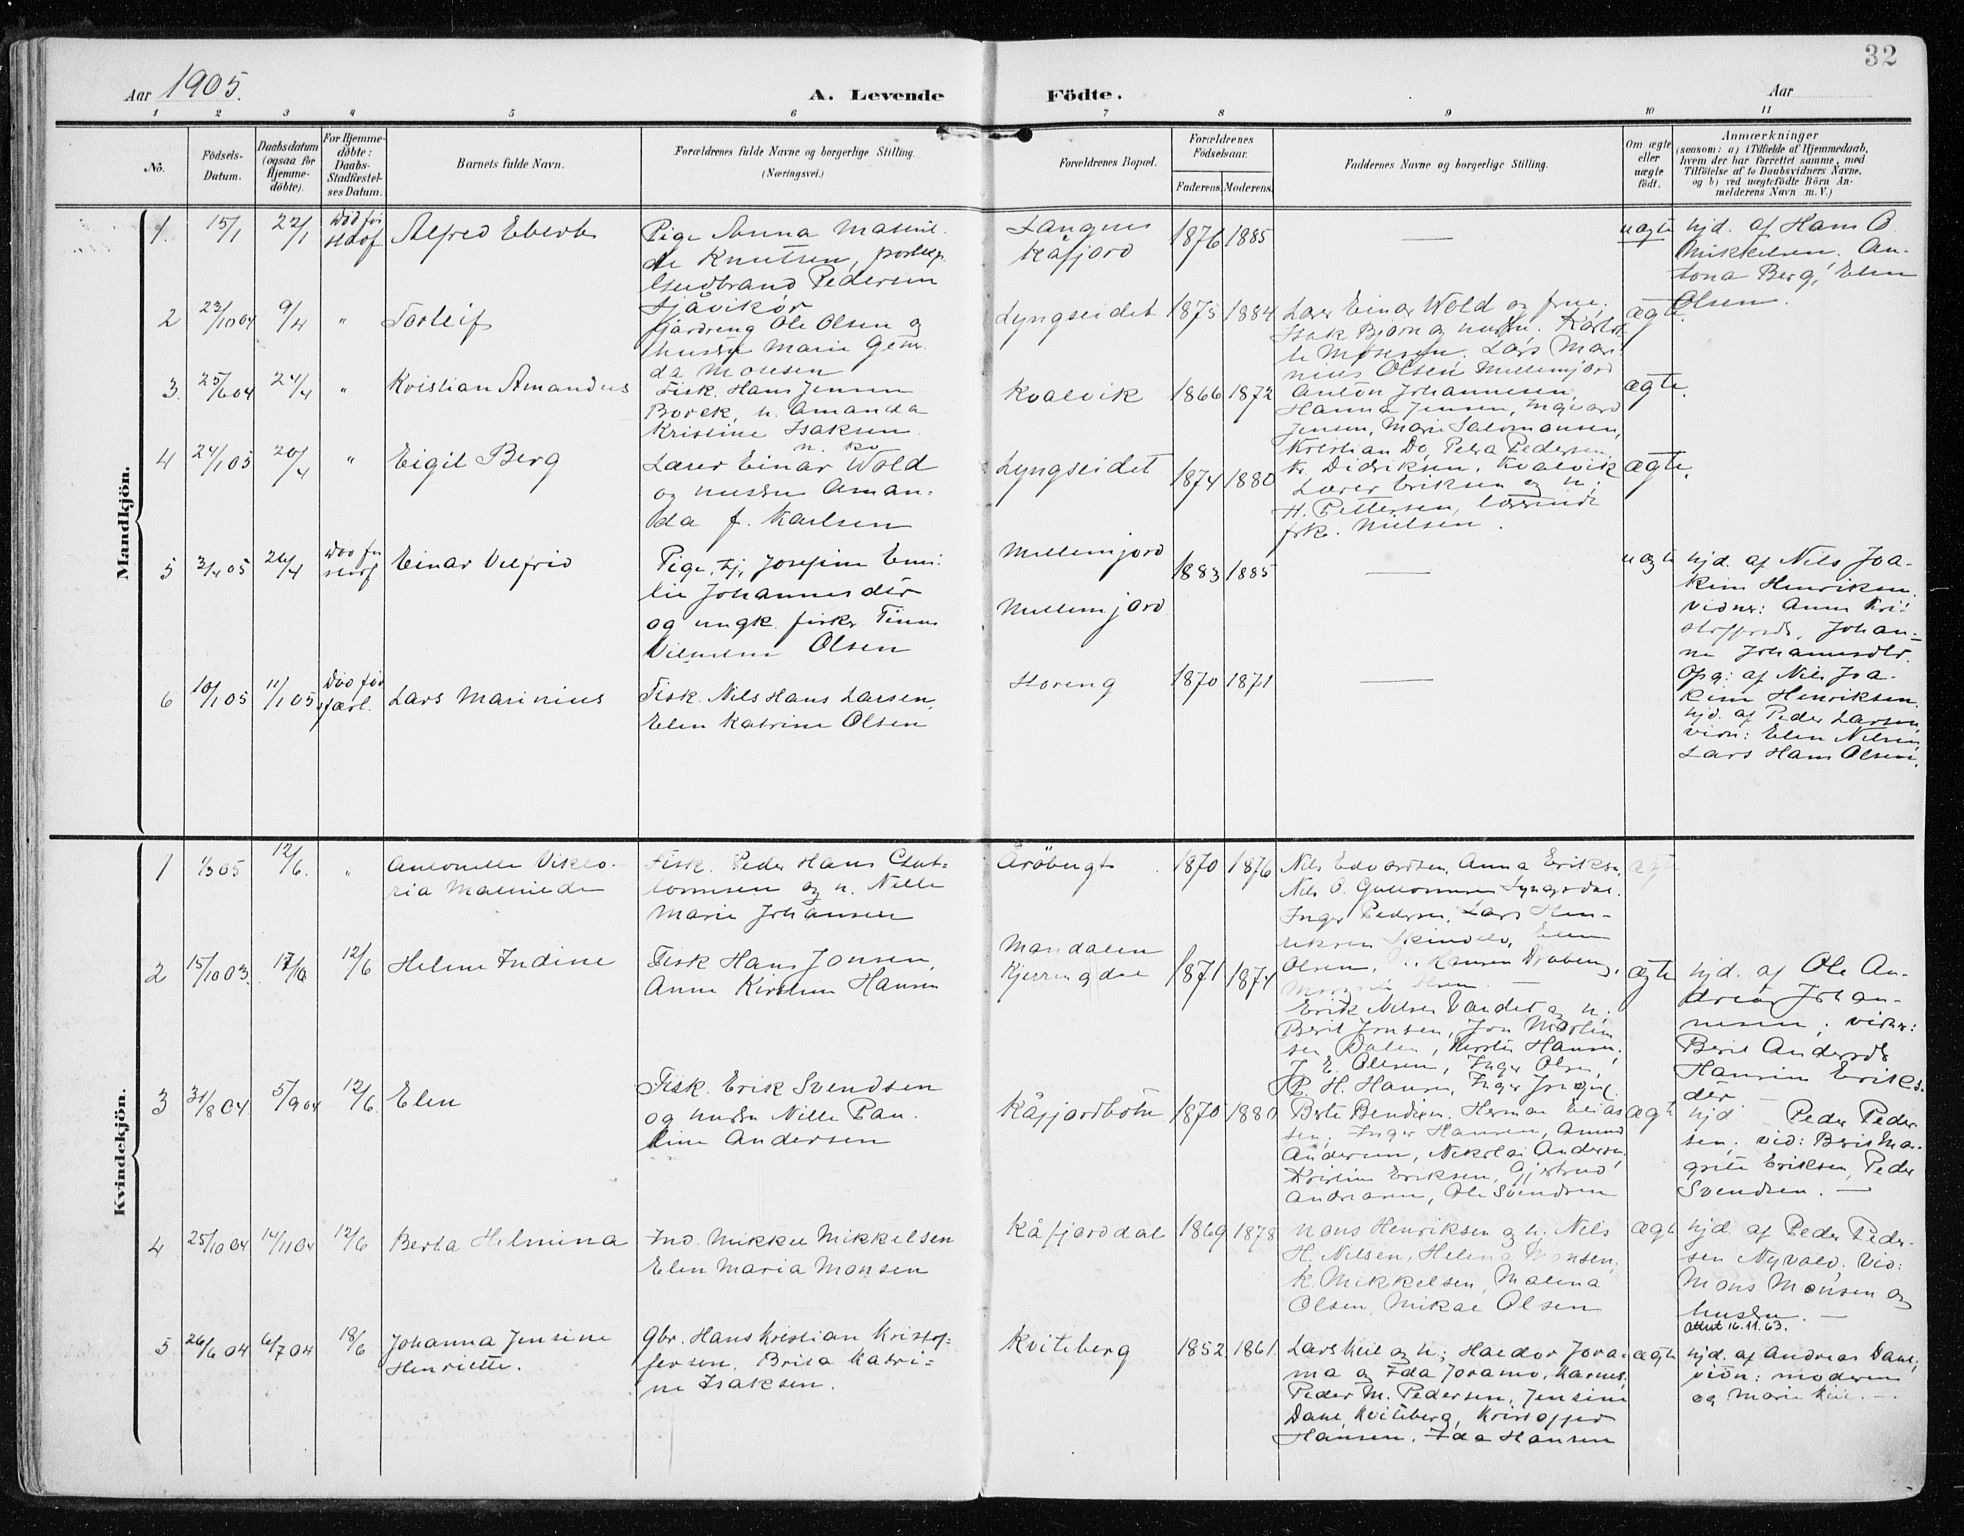 32
Aar 1905.
A. Levende Födte.
Aar
1 2 3 4 5 6 7 8 9 10 11
No.
Födsels-Datum.
Daabsdatum (ogsaa for Hjemmedöbte).
For Hjemmedöbte: Daabs-Stadfæstelses Datum.
Barnets fulde Navn.
Forældrenes fulde Navne og borgerlige Stilling. (Næringsvei.)
Forældrenes Bopæl.
Forældrenes Födselsaar.
Faderens. Moderens.
Faddernes Navne og borgerlige Stilling.
Om ægte eller uægte födt.
Anmærkninger
(saasom: a) i Tilfælde af Hjemmedaab, hvem der har forrettet samme, med Tilföielse af to Daabsvidners Navne, og b) ved uægtefödte Börn Anmelderens Navn m. V.)
Mandkjön.
1. 15/1 22/1 Död før stadf
Alfred Ebert
Pige Anna Matil-
de Knutsen,
Gudbrand Pedersen
Gjøvik
Langnes
Kåfjord
1876 1885
—
uægte
hjd. af Hans O
Mikkelsen, An-
tona Berg, Elen
Olsen.
2 23/10 04 9/4 "
Torleif
Gårdreng Ole Olsen og
hustru Marie
da Monsen
Lyngseidet
1875 1884
Lærer Einar Wold og frue.
Isak Bjørn og hustru.
Lars Mari
nius Olsen, Millemjord
ægte.
3. 25/6 04 24/4 "
Kristian Amandus
Fisk. Hans Jensen
Borch, h. Amanda
Kristine Isaksen
Kvalvik
1866 1872
Anton Johannesen,
Hanna Jensen, Ingvard
Jensen, Marie Salomonsen,
Kristian Do, Petra Pedersen,
Kr. Didriksen, Kvalvik
ægte.
4 24/1 05 20/4 "
Eigil Berg
Lærer Einar Wold
og hustru Aman-
da f. Karlsen
Lyngseidet
1874 1880
Lærer Eriksen og h.
H. Pettersen, lærerinde
frk. Nielsen.
ægte.
5 3/4 05 26/4 Död før stadf.
Einar Vilfrid
Pige, Josefine Emi-
lie Johannesdtr
og ungk. fisker
Vilhelm Olsen
Millemjord
Millemjord
1883 1885
—
uægte
hjd. af Nils Joa-
kim Henriksen.
vidner: Anne Kri-
stoffersd, Johan-
ne Johannesdtr.
Opg: af Nils Joa-
kim Henriksen.
6 10/1 05 11/1 05 Död før
Lars Marinius
Fisk. Nils Hans Larsen,
Elen Katrine Olsen
Storeng
1870 1871
—
hjd. af Peder Larsen,
vidn: Elen Nilsen,
Lars Hans Olsen.
Kvindekjön.
1 1/3 05 12/6. "
Antonette Vikto-
ria Matilde
Fisk. Peder Hans
og h. Nille
Marie Johansen
Årøbugt
1870 1876
Nils Edvardsen, Anna Eriksen
Nils O. Guttormsen Lyngsdal.
Inger Pedersen, Lars Hen-
riksen Elen
Olsen, Hansen
ægt
2 15/10 03. 17/10 12/6
Helene Indine
Fisk Hans Jonsen,
Anne Kirstine Hansen
Mandalen
Kjerringdal
1871 1874
Erik Nilsen og h.
Berit Jonsen, Jon Martin
sen Dalen, Hansen
J. E. Olsen, Inger Olsen,
P. H. Hansen, Inger
ægte
hjd. af Ole An-
dreas Johan-
nesen, vidner:
Berit Andersdtr
Hansine Eriks-
dtr
3 31/8 04 5/9 04 12/6.
Elen
Fisk. Erik Svendsen
og hustru Nille Pau-
line Andersen
Kåfjordbotn
1870 1880
Berte Bendiksen. Herman Elias
sen, Inger Hansen, Amund
Andersen, Nikolai Andersen
Kristine Eriksen, Gjertrud
Andreasen, Ole Svendsen
ægt
hjd — Peder Peder
sen, vid: Berit Mar-
grite Eriksen, Peder
Svendsen. —
4 25/10 04 14/11 04 12/6
Berta Helmina
Ind. Mikkel Mikkelsen
Elen Maria Monsen
Kåfjorddal
1869 1878
Mons Henriksen og h. Nils
H. Nilsen, Helena Monsen,
K Mikkelsen, Malena
Olsen, Mikal Olsen
ægt
hjd. af Peder Peder-
sen Nyvold, vid:
Mons Monsen og
hustru. —
attest 16.11.63.
5 26/6 04 6/7 04 18/6
Johanna Jensine
Henriette.
gbr. Hans Kristian Kristof-
fersen, Brita Katri-
ne Isaksen.
Kviteberg
1852. 1861.
Lars Kiil og h; Haldor Jora-
ma og Ida Joramo, Karnes,
Peder M. Pedersen, Jensine
Dahl, Kviteberg, Kristoffer
Hansen, Ida Hansen
ægte
hjd. af Andreas Dahl,
vidn: moderen
og Marie Kiil. —